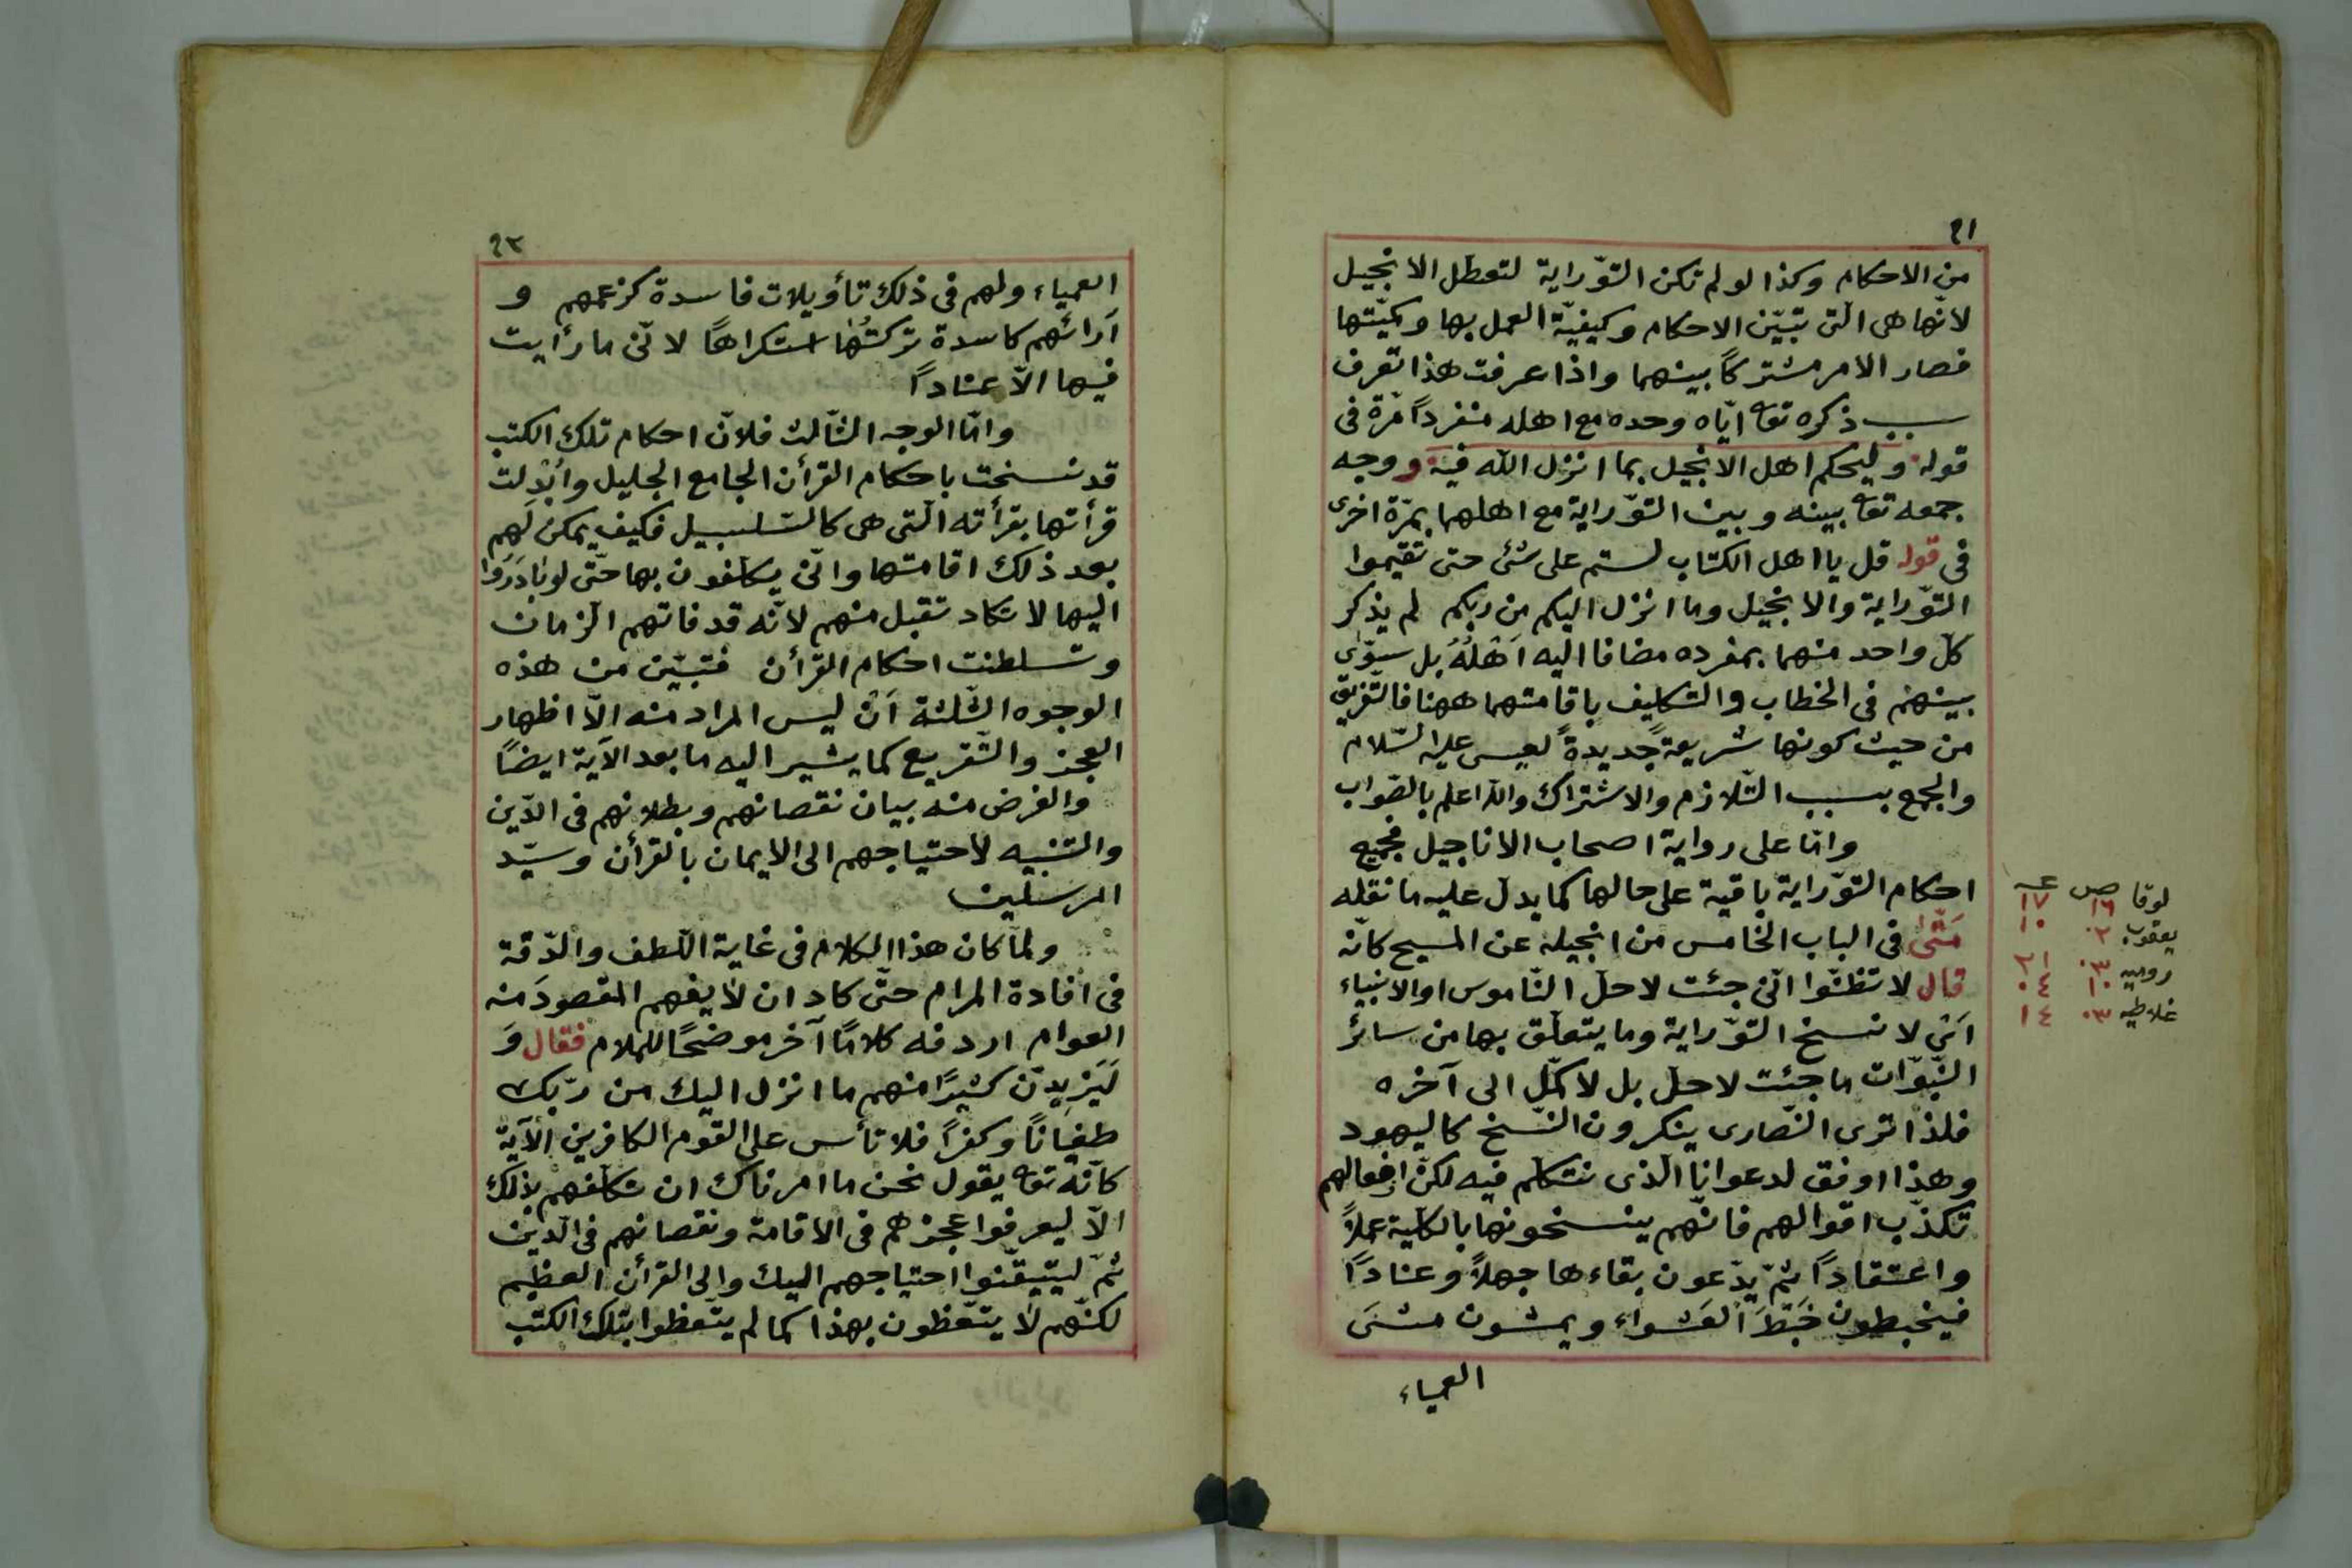 ٢١
من الاحكام وكذا لو لم تكن التّوراية لتعطل الانجيل
لانّها هى الّتى تبيّن الاحكام وكيفيّة العمل بها وكميّتها
فصار الامر مشتركاً بينهما واذا عرفت هذا تعرف
سبب ذكره تعه ايّاه وحده مع اهله منفرداً مرّة فى
قوله وليحكم اهل الانجيل بما انزل الله فيه ووجه
جمعه تعه بينه وبين التّوراية مع اهلهما بمرّة اخرى
فى قوله قل يا اهل الكتاب لستم على شئ حتى تقيموا
التّوراية والانجيل وما انزل اليكم من ربكم لم يذكر
كلّ واحد منهما بمفرده مضافا اليه اَهْلُهُ بل سوّى
بينهم فى الخطاب والتكليف باقامتهما ههنا فالتّفريق
من حيث كونها شريعةً جديدةً لعيسى عليه السّلام
والجمع بسبب التّلازم والاشتراك والله اعلم بالصّواب
وامّا على رواية اصحاب الاناجيل فجميع
احكام التّوراية باقية على حالها كما يدلّ عليه ما نقله
مَتّىٰ فى الباب الخامس من انجيله عن المسيح كانّه
قال لا تظنّوا انّى جئت لاحلّ النّاموس او الانبياء
اَىْ لا نسخ التّوراية وما يتعلّق بها من سائر
النّبوّات ما جئت لاحلّ بل لاكمّل الى آخره
فلذا ترى النّصارى ينكرون النّسخ كاليهود
وهذا اوفق لدعوانا الّذى نتكلّم فيه لكنّ افعالهم
تكذّب اقوالهم فانّهم ينسخونها بالكلّية عملاً
واعتقاداً ثمّ يدّعون بقاءها جهلاً وعناداً
فيخبطون خَبْطَ العَشواء ويمشون مشىَ
العمياء
لوقا ص عـ
١٦ ١٧
يعقوب ٢. ١٠
روميه ٣. ٣١
١٠ ٤.
غلاطيه ٣. ١٤
٢٢
العمياء ولهم فى ذلك تأويلات فاسدة كزعمهم و
آرائهم كاسدة تركتُها استكراهًا لانّى ما رأيت
فيها الاّ عناداً
وامّا الوجه الثّالث فلانّ احكام تلك الكتب
قد نسخت باحكام القرأن الجامع الجليل واُبْدِلت
قرأتها بقرأته الّتى هى كالسّلسبيل فكيف يمكن لهم
بعد ذلك اقامتها وانّى يكلّفون بها حتّى لو بَادَرُوا
اليها لا تكاد تقبل منهم لانّه قد فاتهم الزمان
وتسلطنت احكام القرأن فتبيّن من هذه
الوجوه الثّلثة اَنْ ليس المراد منه الاّ اظهار
العجز والتّقريع كما يشير اليه ما بعد الآية ايضًا
والغرض منه بيان نقصانهم وبطلانهم فى الدّين
والتنبيه لاحتياجهم الى الايمان بالقرأن وسيّد
المرسلين
ولمّا كان هذا الكلام فى غاية اللّطف والدّقة
فى افادة المرام حتّى كاد ان لا يفهم المقصودَ منه
العوام اردفه كلامًا آخر موضحًا للملام فقال وَ
لَيَزيدنّ كثيرًا منهم ما انزل اليك من ربّك
طغيانًا وكفرًا فلا تأس على القوم الكافرين الآية
كأنّه تعه يقول نحن ما امرناك ان تكلّفهم بذلك
الاّ ليعرفوا عجزهم فى الاقامة ونقصانهم فى الّدين
ثمّ ليتيقّنوا احتياجهم اليك والى القرأن العظيم
لكنّهم لا يتّعظون بهذا كما لم يتّعظوا بتلك الكتب